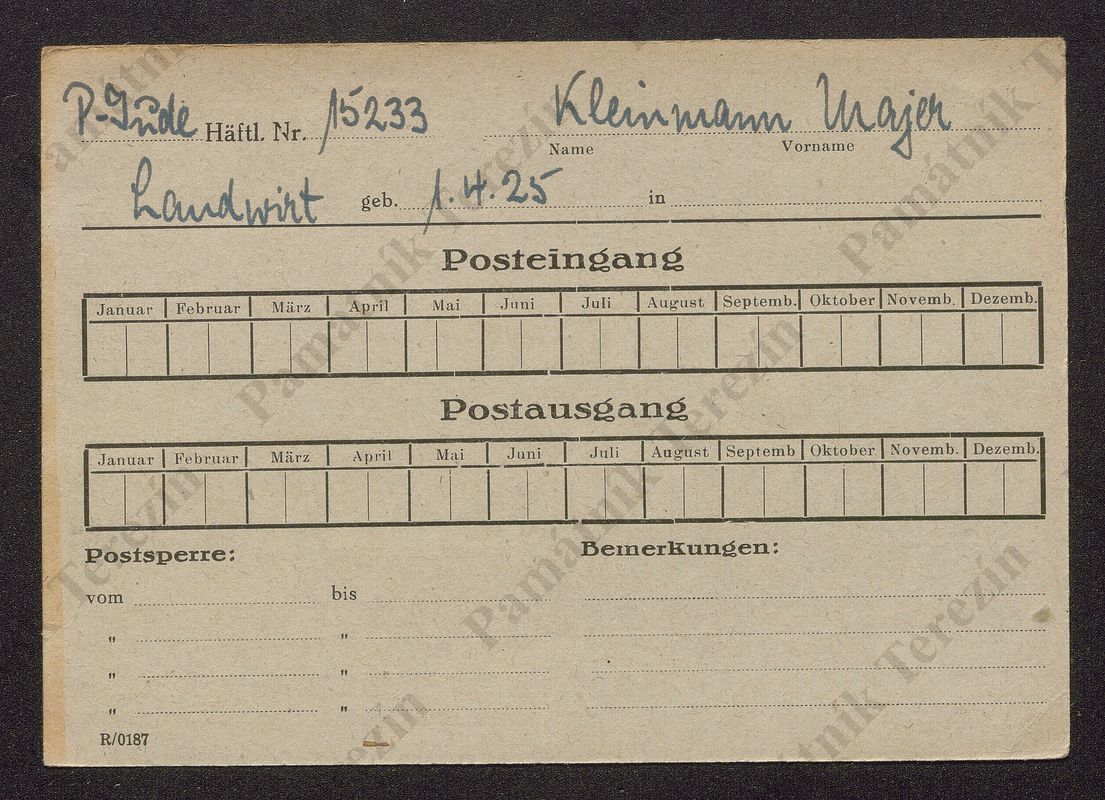 P-Jude Häftl. Nr. 15233 Kleinmann Majer
Name Vorname
Landwirt geb. 1.4.25 in
Posteingang
Januar Februar März April Mai Juni Juli August Septemb. Oktober Novemb. Dezemb.
Postausgang
Januar Februar März April Mai Juni Juli August Septemb Oktober Novemb. Dezemb.
Postsperre: Bemerkungen:
vom bis
" "
" "
" "
R/0187
Památník Terezín